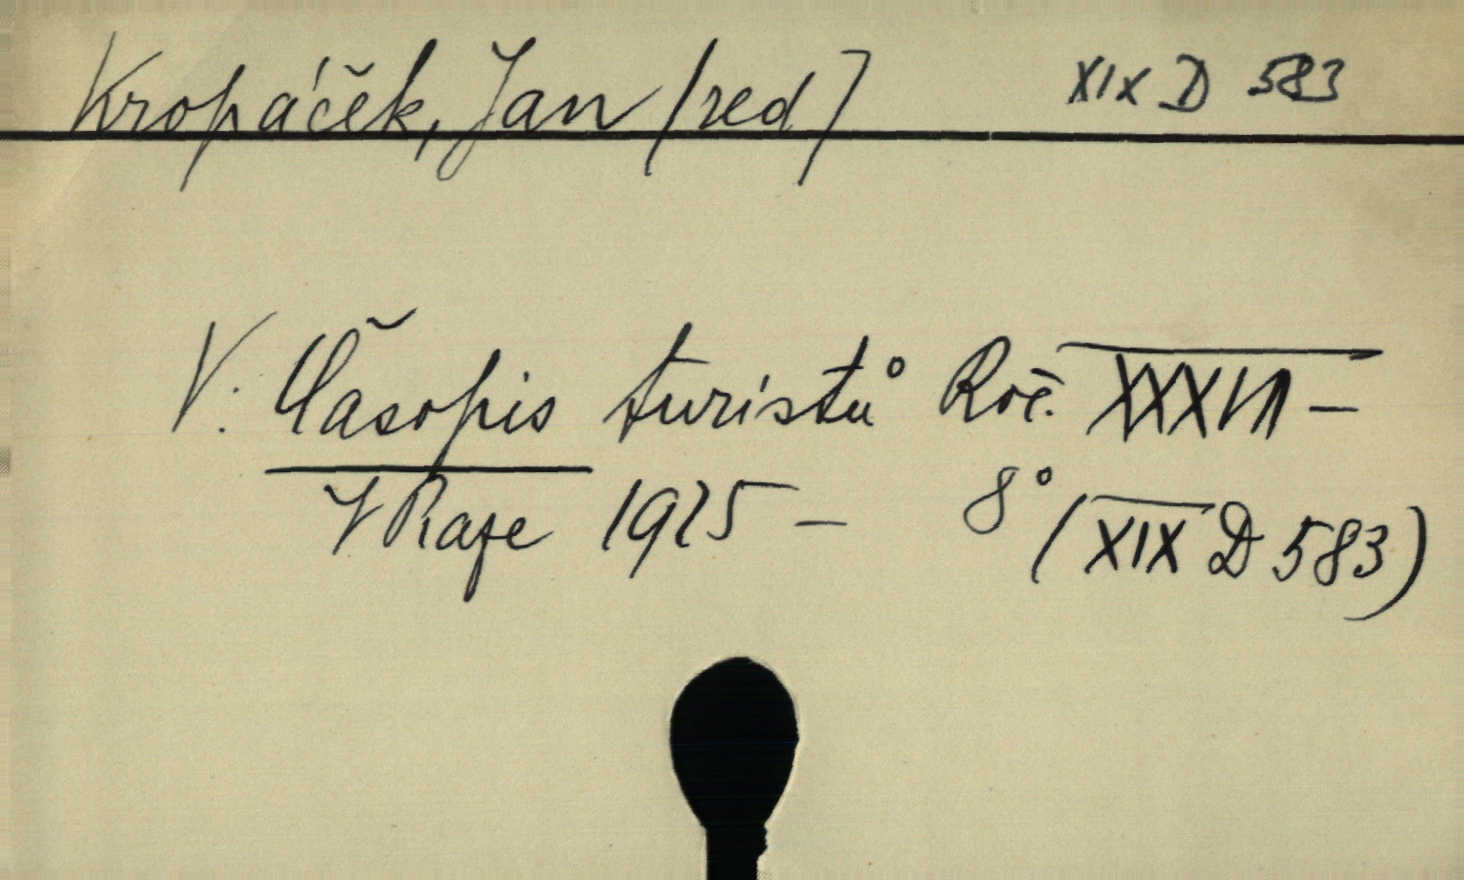 Kropáček, Jan /red/ XIX D 583
V. Časopis turistů Roč. XXXVII –
V Praze 1925 – 8° (XIX D 583)